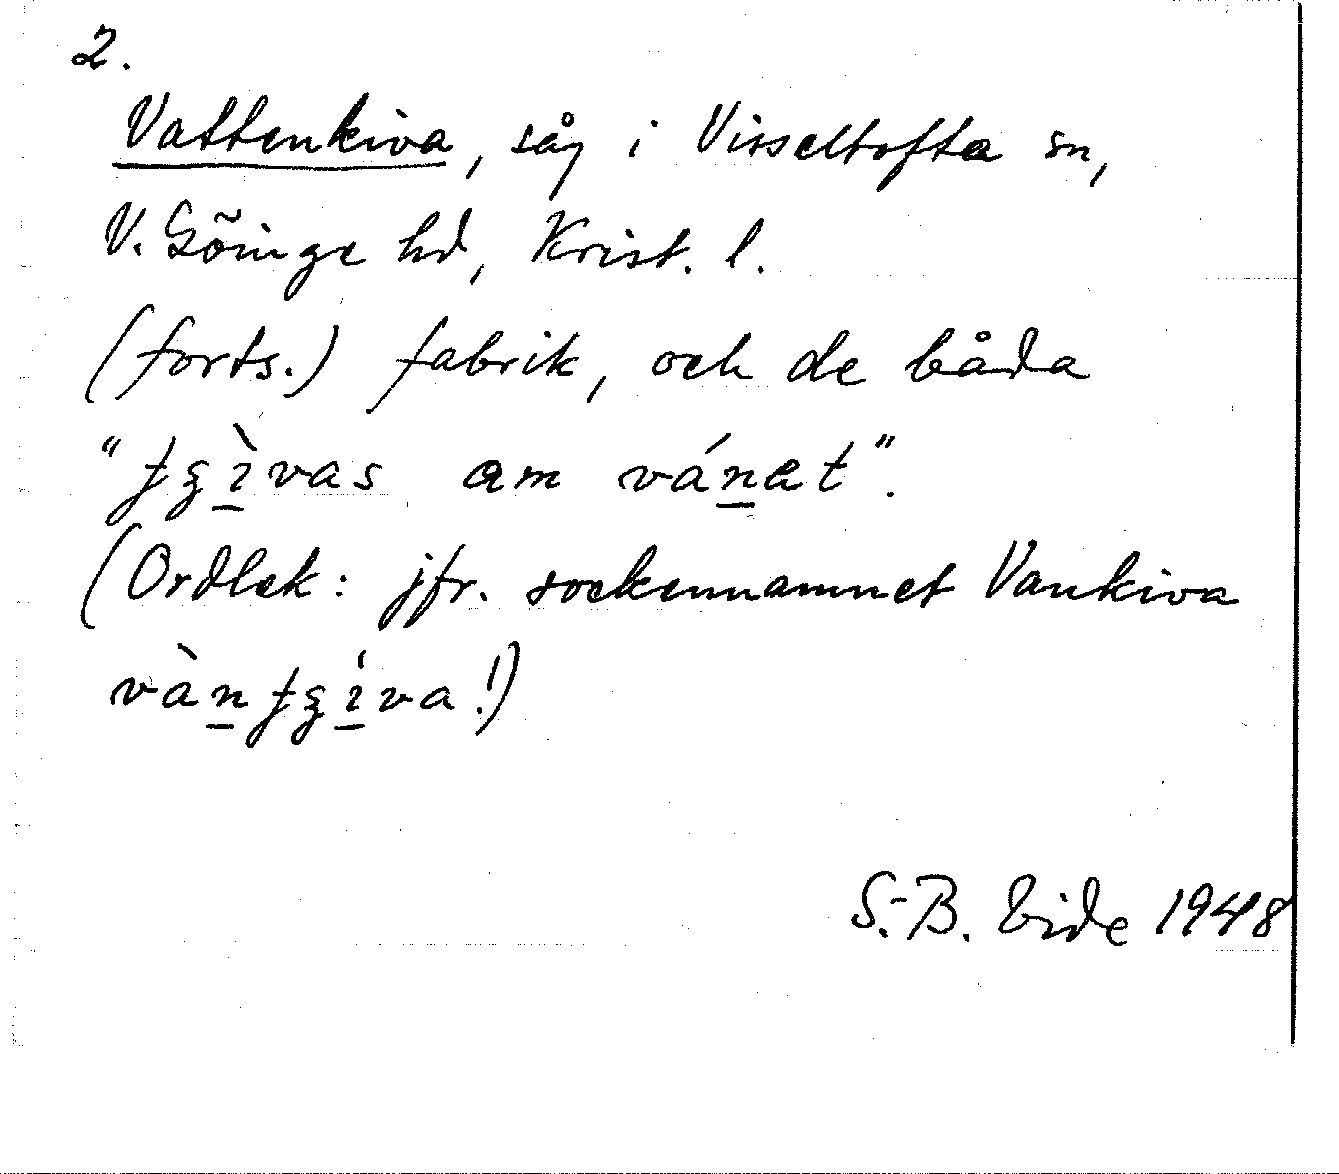 2.
Vattenkiva, såg i Visseltofta sn,
V. Göinge hd, Krist. l.
(forts.) fabrik, och de båda
"ɟʒı̱̀vas am váṉat".
(Ordlek: jfr. sockennamnet Vankiva
vàṉɟʒı̱́va!)
S.-B. Vide 1948